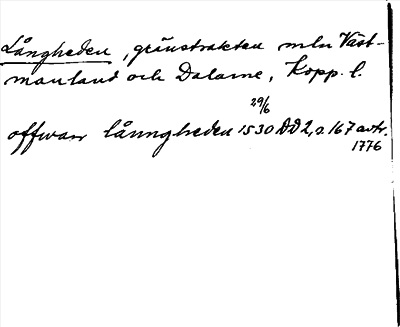 Långheden, gränstrakten mln Väst-
manland och Dalarne, Kopp. l.
29/6
offwan lånngheden 1530 DD 2, s 167 avtr.
1776